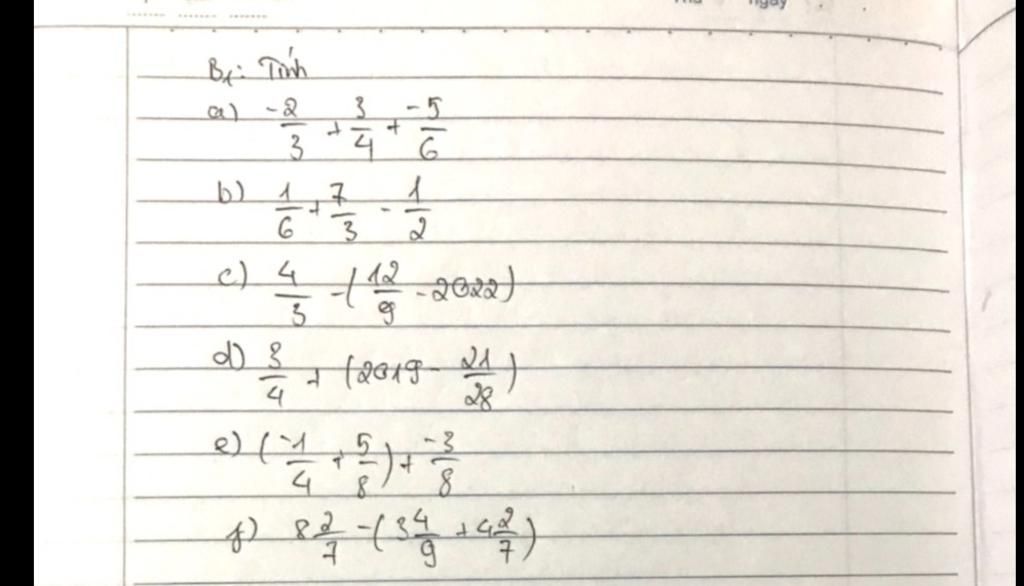 Thứ ngày
B1: Tính
a) -2/3 + 3/4 + -5/6
b) 1/6 + 7/3 - 1/2
c) 4/3 - (12/9 - 2022)
d) 3/4 + (2019 - 21/28)
e) (-1/4 + 5/8) + -3/8
f) 8 2/7 - (3 4/9 + 4 2/7)